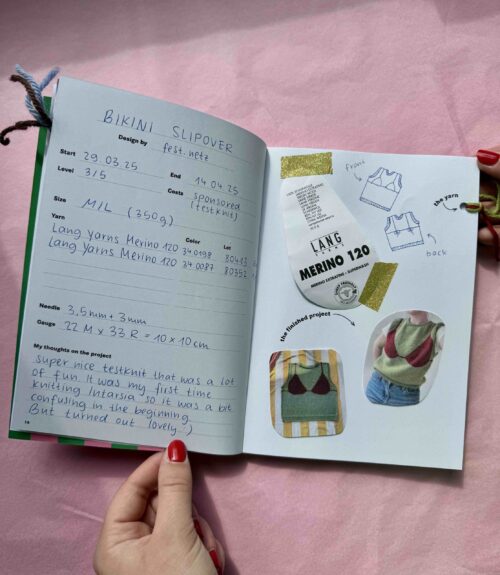 BIKINI SLIPOVER
Design by fest.netz
Start 29.03.25 End 14.04.25
Level 3/5 Costs sponsored
(testknit)
Size M/L (350g)
Yarn Color Lot
Lang Yarns Merino 120 34.0198 80413
Lang Yarns Merino 120 34.0087 80352
Needle 3,5mm + 3mm
Gauge 22 M x 33 R = 10 x 10 cm
My thoughts on the project
Super nice testknit that was a lot
of fun. It was my first time
knitting Intarsia so it was a bit
confusing in the beginning.
But turned out lovely :)
front
the yarn
back
LANG
YARNS
MERINO 120
MERINO EXTRAFINE · SUPERWASH
the finished project